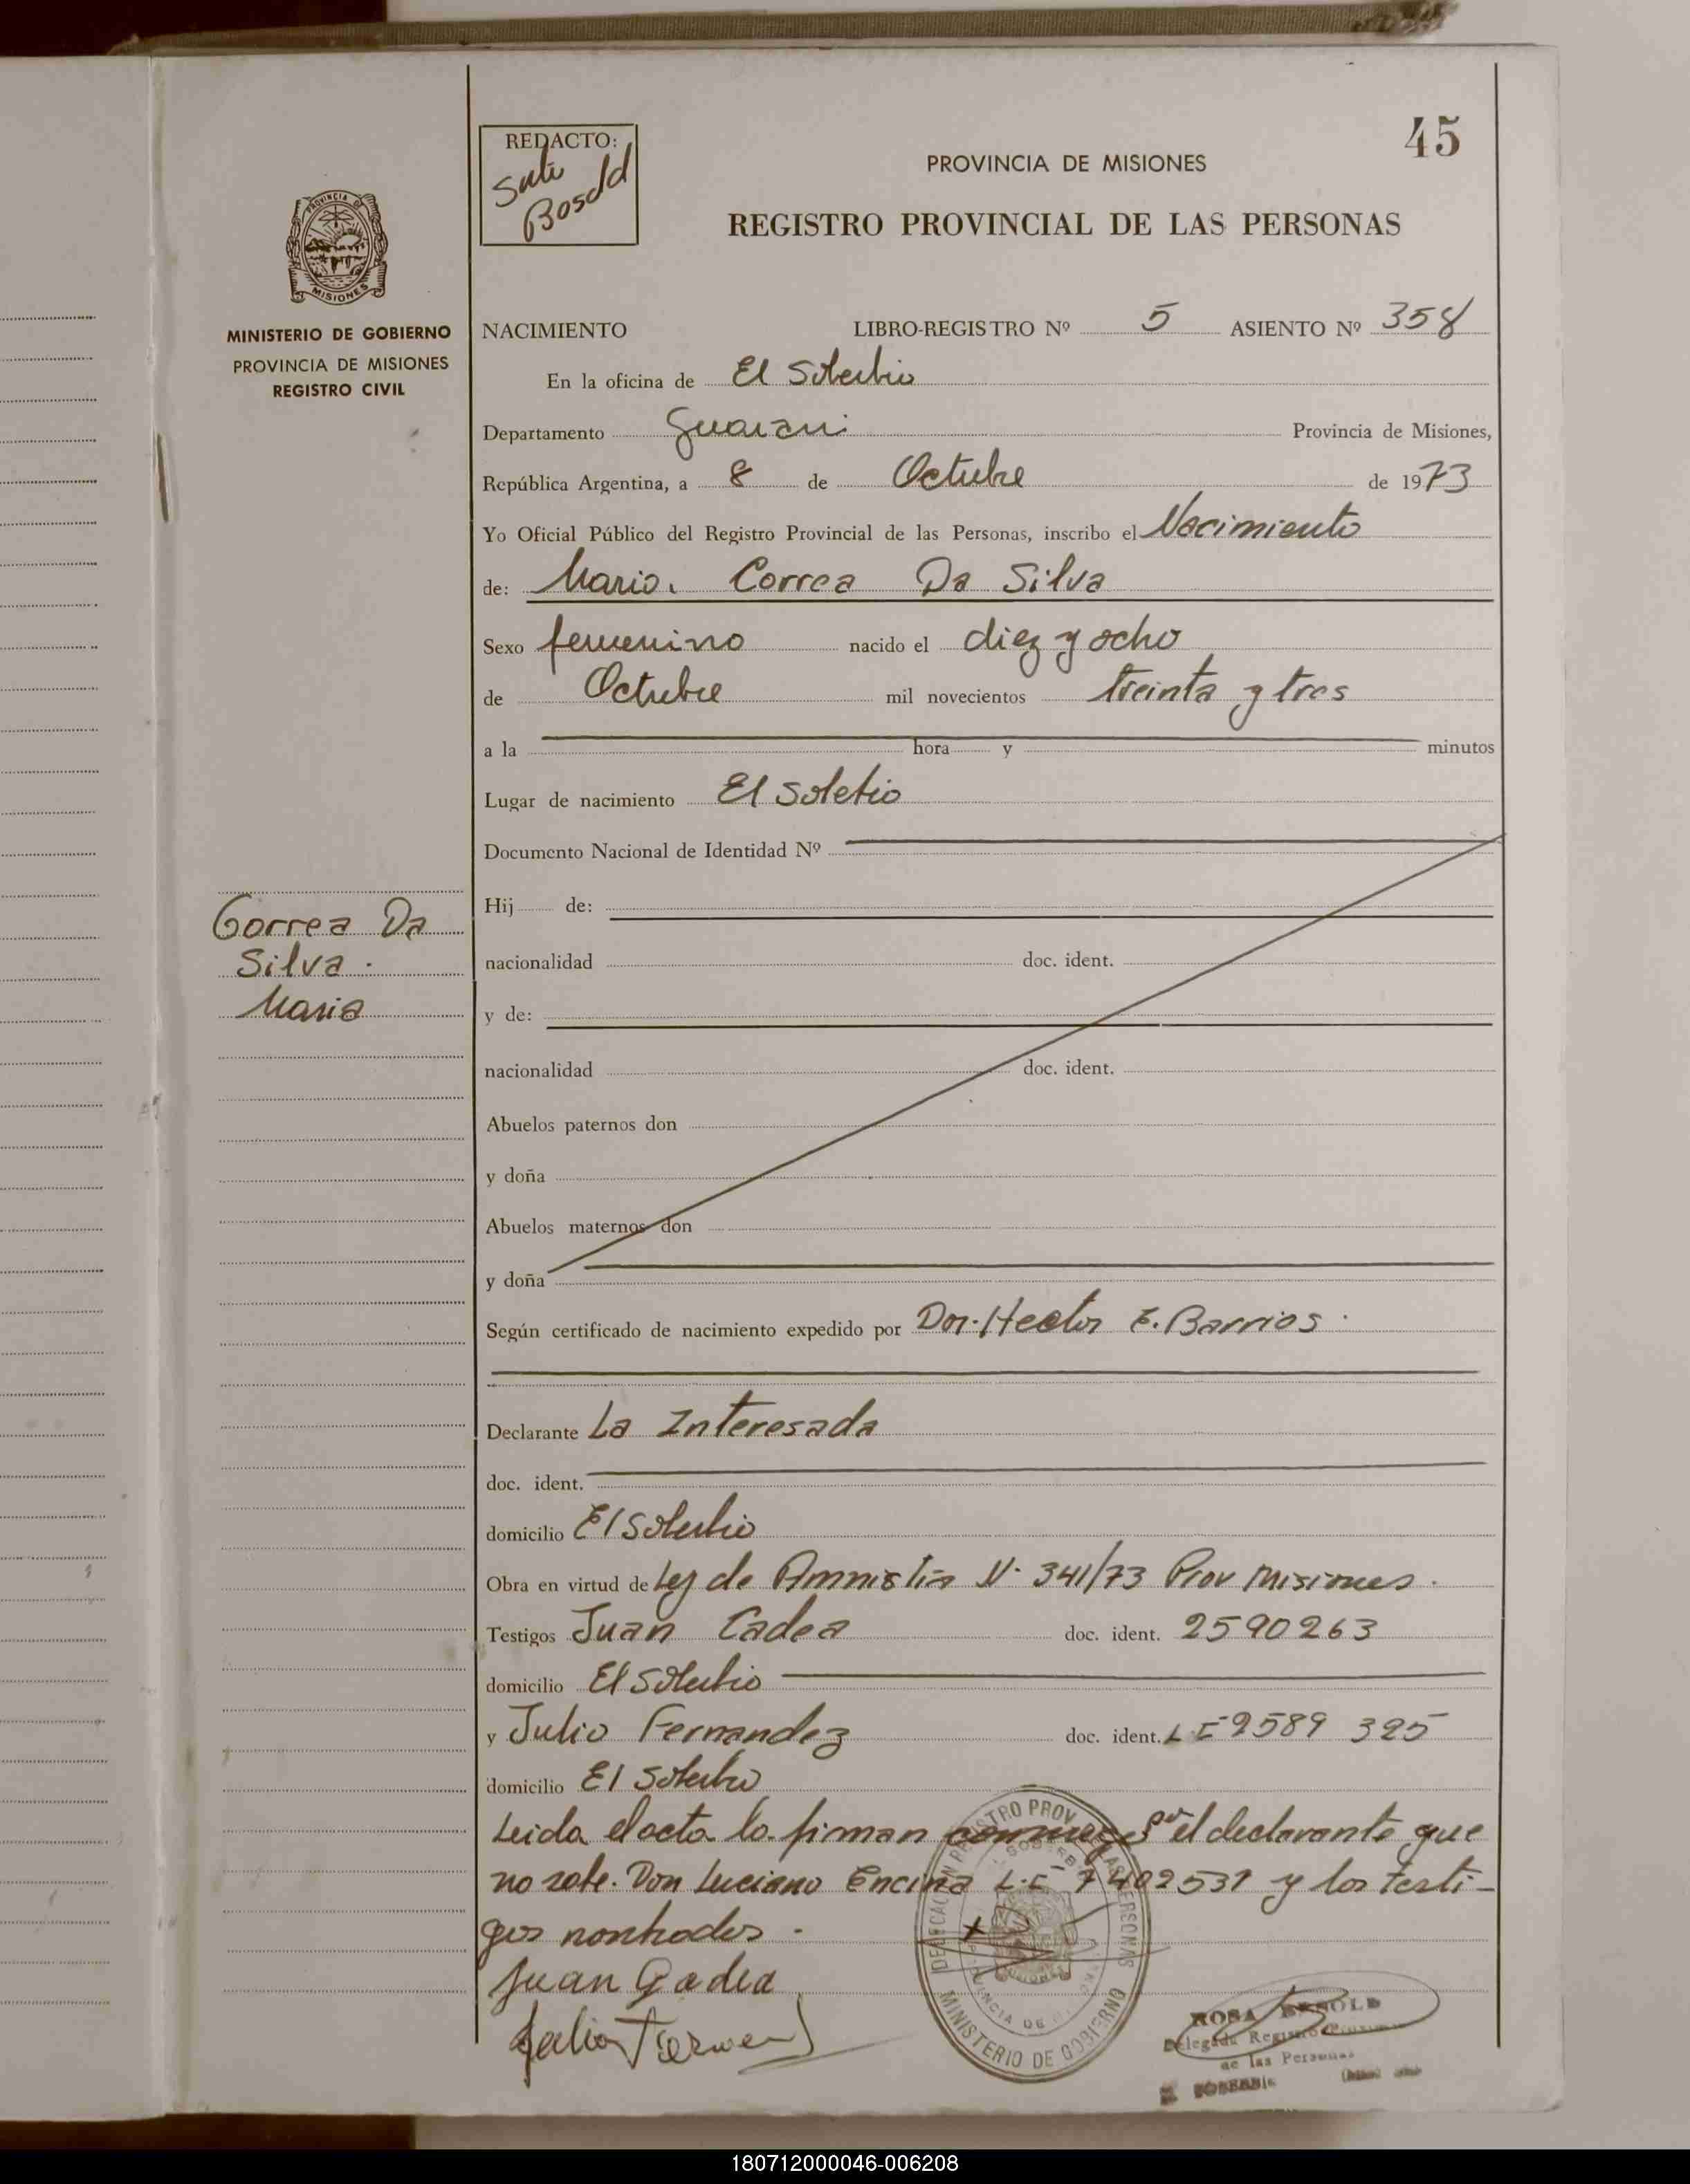 45
REDACTO:
PROVINCIA DE MISIONES
REGISTRO PROVINCIAL DE LAS PERSONAS
PROVINCIA DE
MISIONES
MINISTERIO DE GOBIERNO
PROVINCIA DE MISIONES
REGISTRO CIVIL
NACIMIENTO LIBRO-REGISTRO Nº 5 ASIENTO Nº 358
En la oficina de El Soberbio
Departamento Guarani Provincia de Misiones,
República Argentina, a 8 de Octubre de 1973
Yo Oficial Público del Registro Provincial de las Personas, inscribo el Nacimiento
de: Maria. Correa Da Silva
Sexo femenino nacido el diez y ocho
de Octubre mil novecientos treinta y tres
a la hora y minutos
Lugar de nacimiento El Sobebio
Documento Nacional de Identidad Nº
Hij de:
Correa Da
Silva.
Maria
nacionalidad doc. ident.
y de:
nacionalidad doc. ident.
Abuelos paternos don
y doña
Abuelos maternos don
y doña
Según certificado de nacimiento expedido por Dor. Hector E. Barrios.
Declarante La Interesada
doc. ident.
domicilio El Soberbio
Obra en virtud de Ley de Amnistia N. 341/73 Prov Misiones.
Testigos Juan Gadea doc. ident. 2590263
domicilio El Soberbio
y Julio Fernandez doc. ident. L E 2589 325
domicilio El Soberbio
Leida el acta la firman por el declarante que
no sabe. Don Luciano Encina L.E 7402531 y los testi-
gos nombrados.
Juan Gadea
MINISTERIO DE GOBIERNO
ROSA
Delegada Registro
de las Personas
180712000046-006208